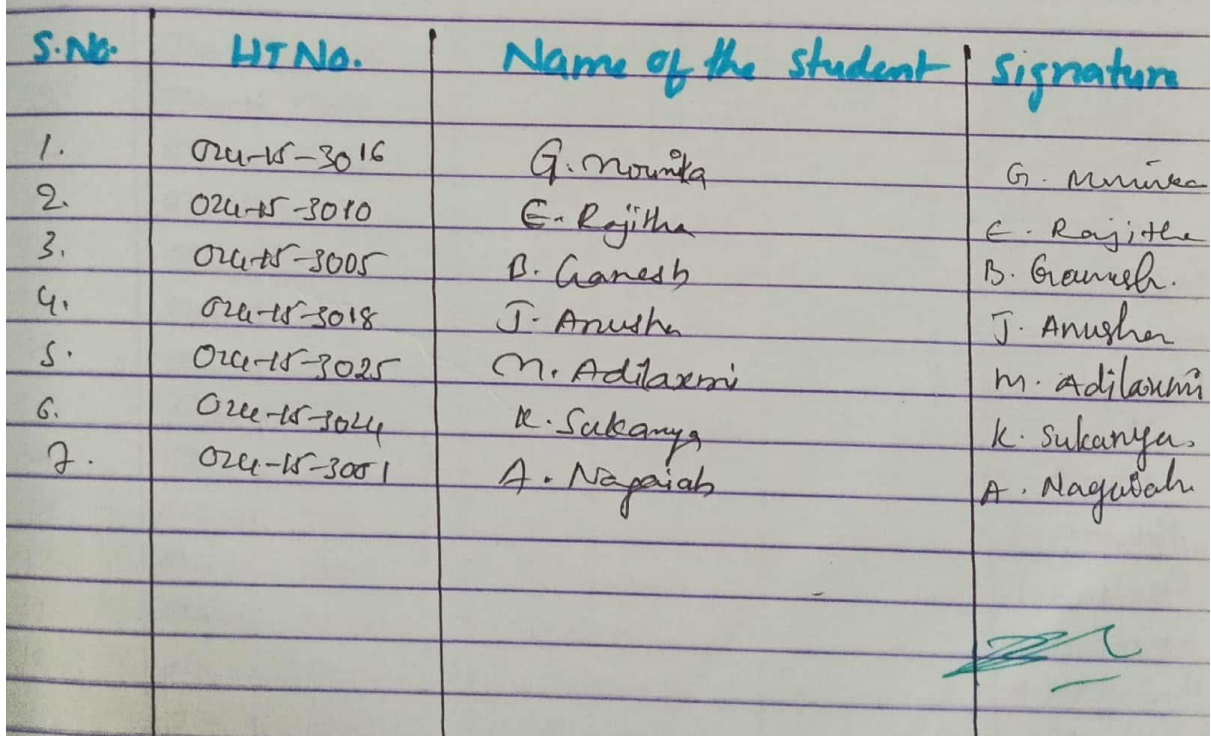 S.No. HT No. Name of the Student Signature
1. 024-15-3016 G. Mounika G. Mounika
2. 024-15-3010 E. Rajitha E. Rajitha
3. 024-15-3005 B. Ganesh B. Ganesh.
4. 024-15-3018 J. Anusha J. Anusha
5. 024-15-3025 M. Adilaxmi M. Adilaxmi
6. 024-15-3024 K. Sukanya K. Sukanya.
7. 024-15-3001 A. Nagaiah A. Nagaiah